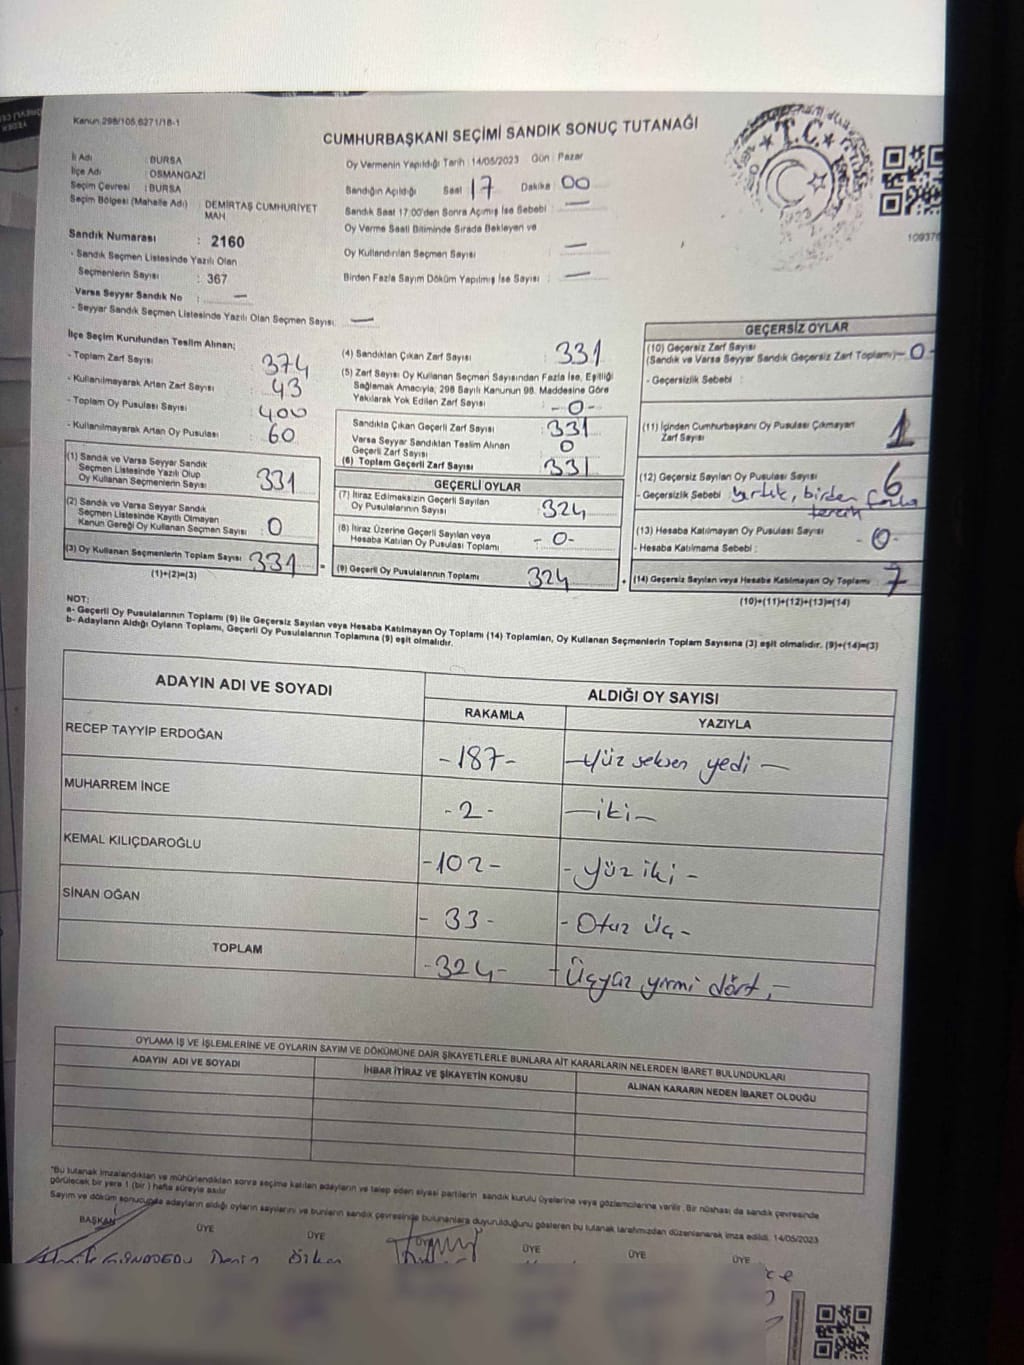 Kanun 298/105 6271/18-1
CUMHURBAŞKANI SEÇİMİ SANDIK SONUÇ TUTANAĞI
T.C.
İl Adı : BURSA
İlçe Adı : OSMANGAZİ
Seçim Çevresi : BURSA
Seçim Bölgesi (Mahalle Adı) : DEMİRTAŞ CUMHURİYET
MAH
Sandık Numarası : 2160
- Sandık Seçmen Listesinde Yazılı Olan
Seçmenlerin Sayısı : 367
Varsa Seyyar Sandık No : —
- Seyyar Sandık Seçmen Listesinde Yazılı Olan Seçmen Sayısı: —
Oy Vermenin Yapıldığı Tarih : 14/05/2023 Gün : Pazar
Sandığın Açıldığı Saat 17 Dakika 00
Sandık Saat 17:00'den Sonra Açılmış İse Sebebi : —
Oy Verme Saati Bitiminde Sırada Bekleyen ve
Oy Kullandırılan Seçmen Sayısı : —
Birden Fazla Sayım Döküm Yapılmış İse Sayısı : —
İlçe Seçim Kurulundan Teslim Alınan;
- Toplam Zarf Sayısı : 374
- Kullanılmayarak Artan Zarf Sayısı : 43
- Toplam Oy Pusulası Sayısı : 400
- Kullanılmayarak Artan Oy Pusulası : 60
(1) Sandık ve Varsa Seyyar Sandık
Seçmen Listesinde Yazılı Olup
Oy Kullanan Seçmenlerin Sayısı : 331
(2) Sandık ve Varsa Seyyar Sandık
Seçmen Listesinde Kayıtlı Olmayan
Kanun Gereği Oy Kullanan Seçmen Sayısı : 0
(3) Oy Kullanan Seçmenlerin Toplam Sayısı : 331
(1)+(2)=(3)
(4) Sandıktan Çıkan Zarf Sayısı : 331
(5) Zarf Sayısı Oy Kullanan Seçmen Sayısından Fazla İse, Eşitliği
Sağlamak Amacıyla, 298 Sayılı Kanunun 98. Maddesine Göre
Yakılarak Yok Edilen Zarf Sayısı : -0-
Sandıkta Çıkan Geçerli Zarf Sayısı : 331
Varsa Seyyar Sandıktan Teslim Alınan
Geçerli Zarf Sayısı : 0
(6) Toplam Geçerli Zarf Sayısı : 331
GEÇERLİ OYLAR
(7) İtiraz Edilmeksizin Geçerli Sayılan
Oy Pusulalarının Sayısı : 324
(8) İtiraz Üzerine Geçerli Sayılan veya
Hesaba Katılan Oy Pusulası Toplamı : -0-
(9) Geçerli Oy Pusulalarının Toplamı : 324
GEÇERSİZ OYLAR
(10) Geçersiz Zarf Sayısı
(Sandık ve Varsa Seyyar Sandık Geçersiz Zarf Toplamı) -0-
- Geçersizlik Sebebi :
(11) İçinden Cumhurbaşkanı Oy Pusulası Çıkmayan
Zarf Sayısı 1
(12) Geçersiz Sayılan Oy Pusulası Sayısı : 6
- Geçersizlik Sebebi birden fazla
tercih
(13) Hesaba Katılmayan Oy Pusulası Sayısı -0-
- Hesaba Katılmama Sebebi :
(14) Geçersiz Sayılan veya Hesaba Katılmayan Oy Toplamı : 7
(10)+(11)+(12)+(13)=(14)
NOT:
a- Geçerli Oy Pusulalarının Toplamı (9) ile Geçersiz Sayılan veya Hesaba Katılmayan Oy Toplamı (14) Toplamları, Oy Kullanan Seçmenlerin Toplam Sayısına (3) eşit olmalıdır. (9)+(14)=(3)
b- Adayların Aldığı Oyların Toplamı, Geçerli Oy Pusulalarının Toplamına (9) eşit olmalıdır.
ADAYIN ADI VE SOYADI
ALDIĞI OY SAYISI
RAKAMLA YAZIYLA
RECEP TAYYİP ERDOĞAN -187- —Yüz seksen yedi —
MUHARREM İNCE -2- —iki—
KEMAL KILIÇDAROĞLU -102- -Yüz iki -
SİNAN OĞAN - 33 - - Otuz Üç -
TOPLAM -324- - Üçyüz yirmi dört.-
OYLAMA İŞ VE İŞLEMLERİNE VE OYLARIN SAYIM VE DÖKÜMÜNE DAİR ŞİKAYETLERLE BUNLARA AİT KARARLARIN NELERDEN İBARET BULUNDUKLARI
ADAYIN ADI VE SOYADI İHBAR İTİRAZ VE ŞİKAYETİN KONUSU ALINAN KARARIN NEDEN İBARET OLDUĞU
*Bu tutanak imzalandıktan ve mühürlendikten sonra seçime katılan adayların ve talep eden siyasi partilerin sandık kurulu üyelerine veya gözlemcilerine verilir. Bir nüshası da sandık çevresinde
görülecek bir yere 1 (bir) hafta süreyle asılır
Sayım ve döküm sonucunda adayların aldığı oyların sayılarını ve bunların sandık çevresinde bulunanlara duyurulduğunu gösteren bu tutanak tarafımızdan düzenlenerek imza edildi. 14/05/2023
BAŞKAN ÜYE ÜYE ÜYE ÜYE ÜYE ÜYE
Deniz Özkan